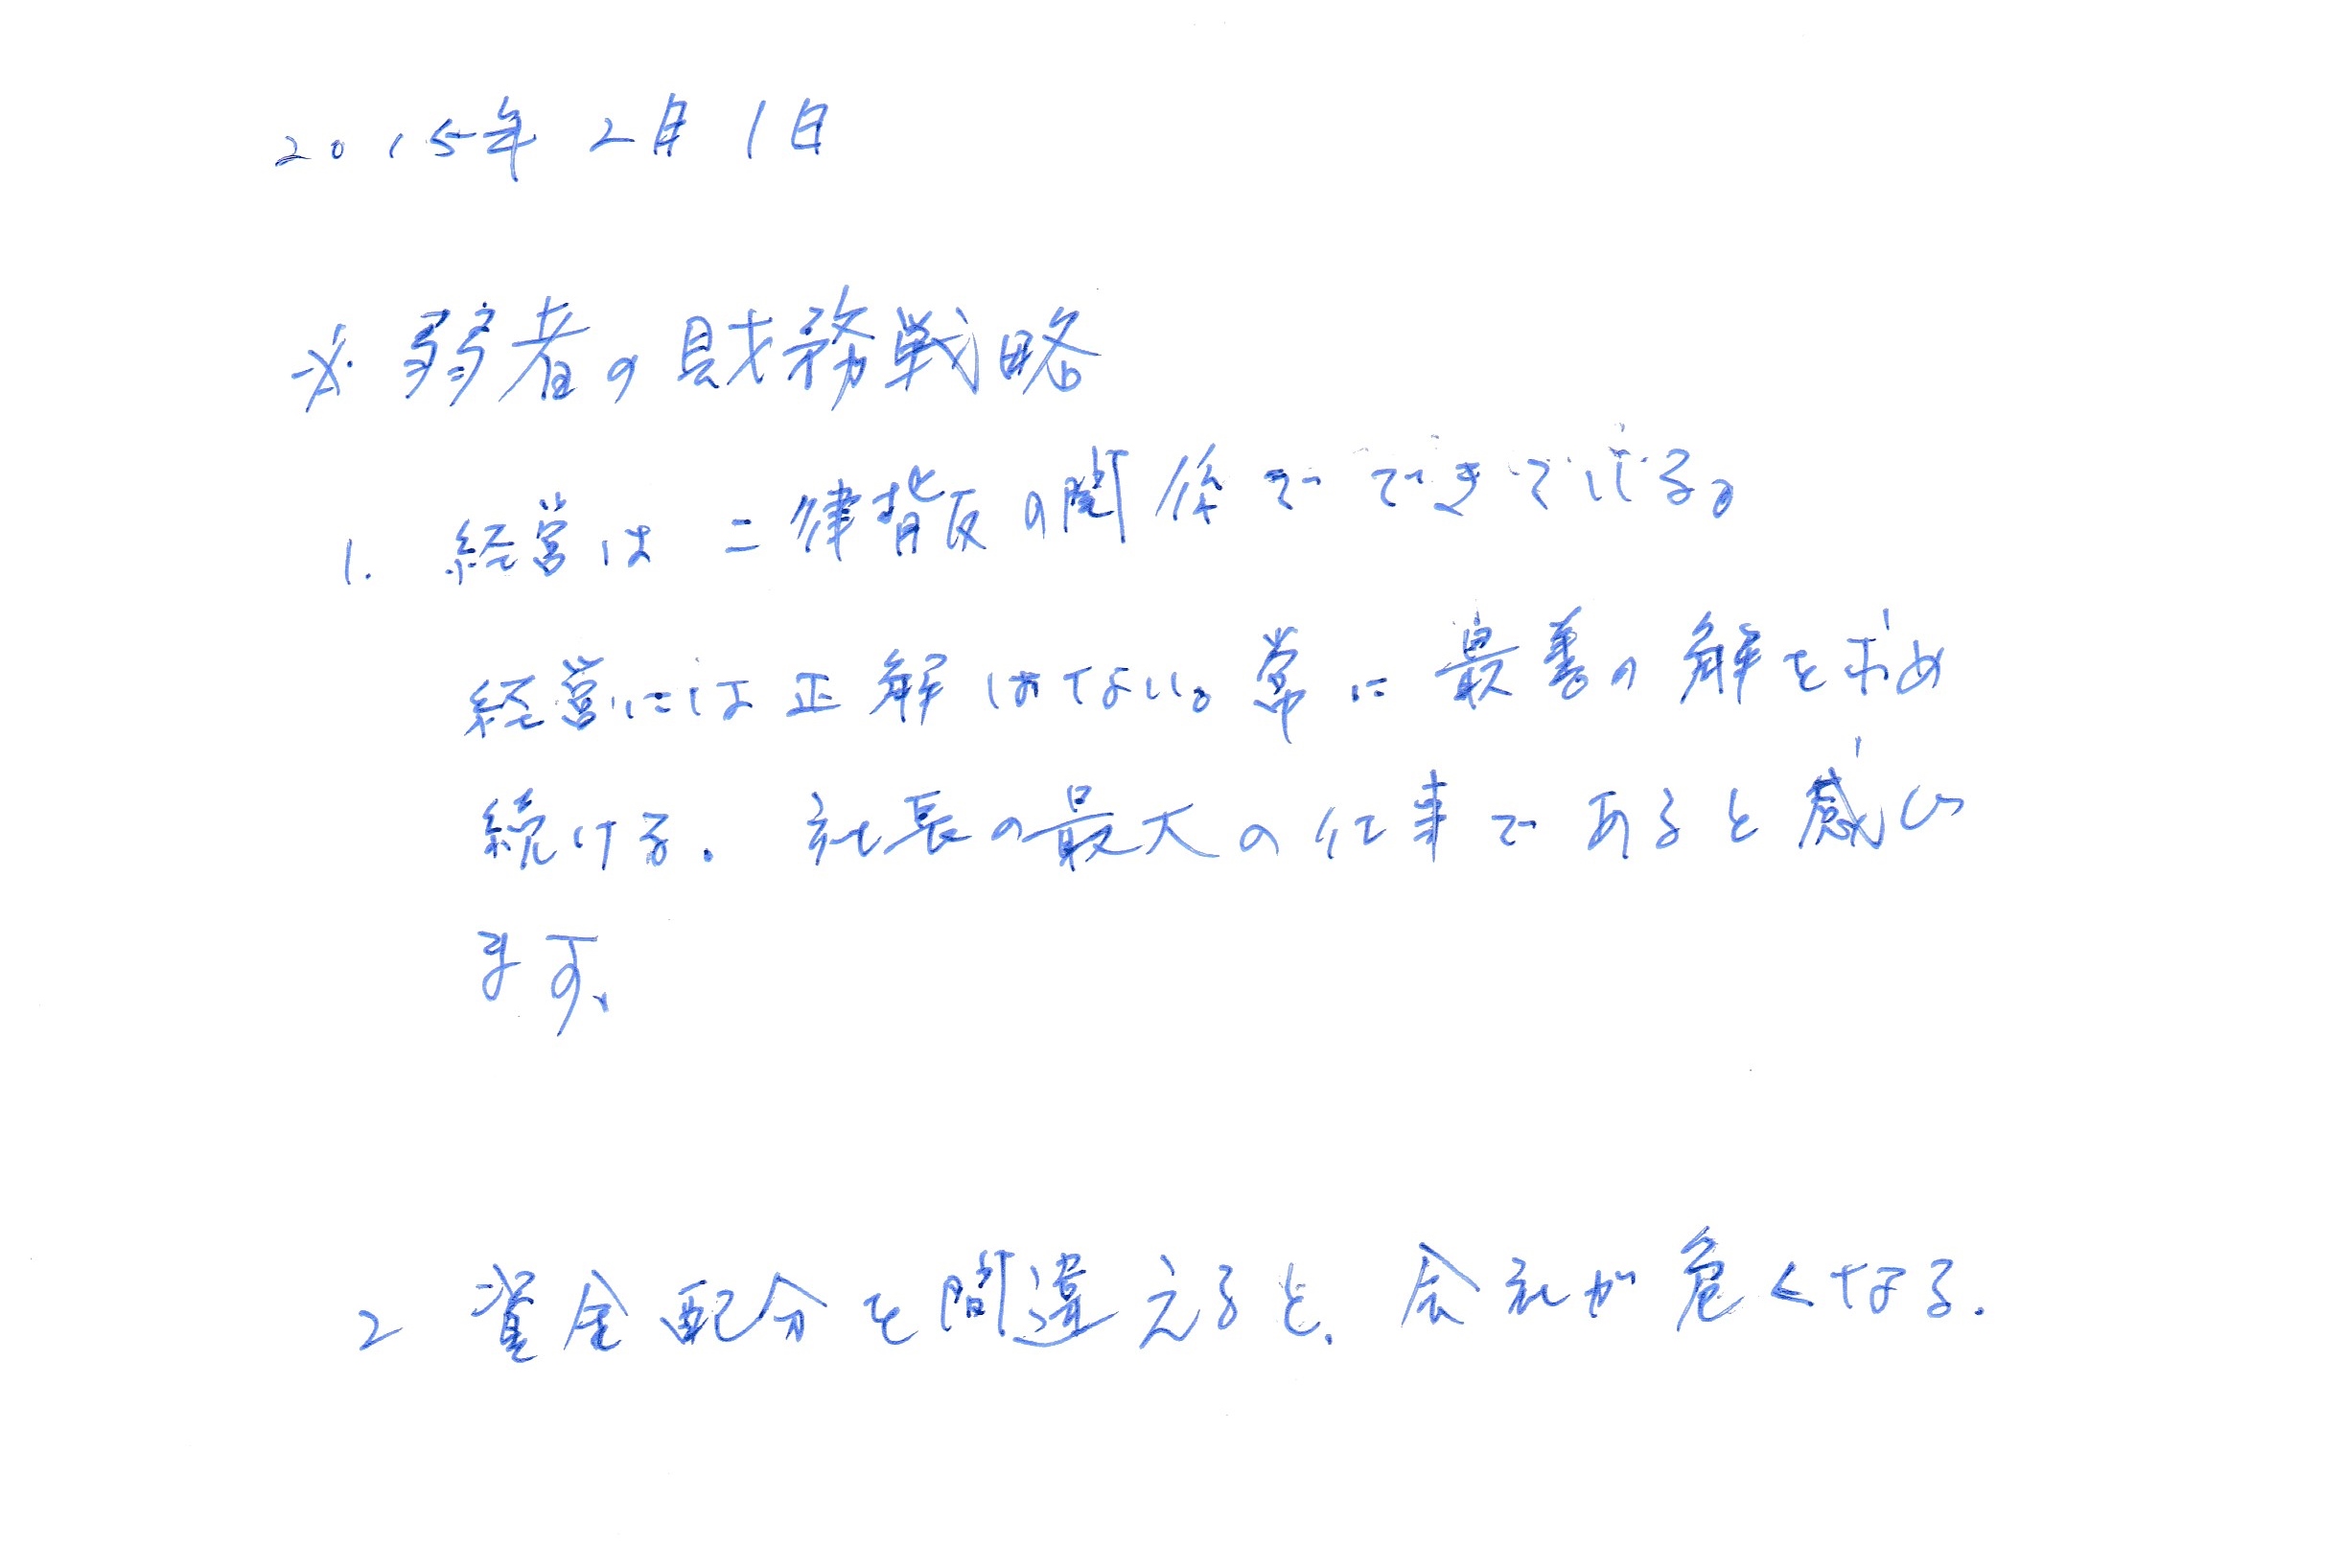 2015年 2月 1日
※ 弱者の財務戦略
1. 経営は二律背反の関係でできている。
経営には正解はない。常に最善の解を求め
続ける。社長の最大の仕事であると感じ
ます。
2 資金配分を間違えると、会社が危くなる。